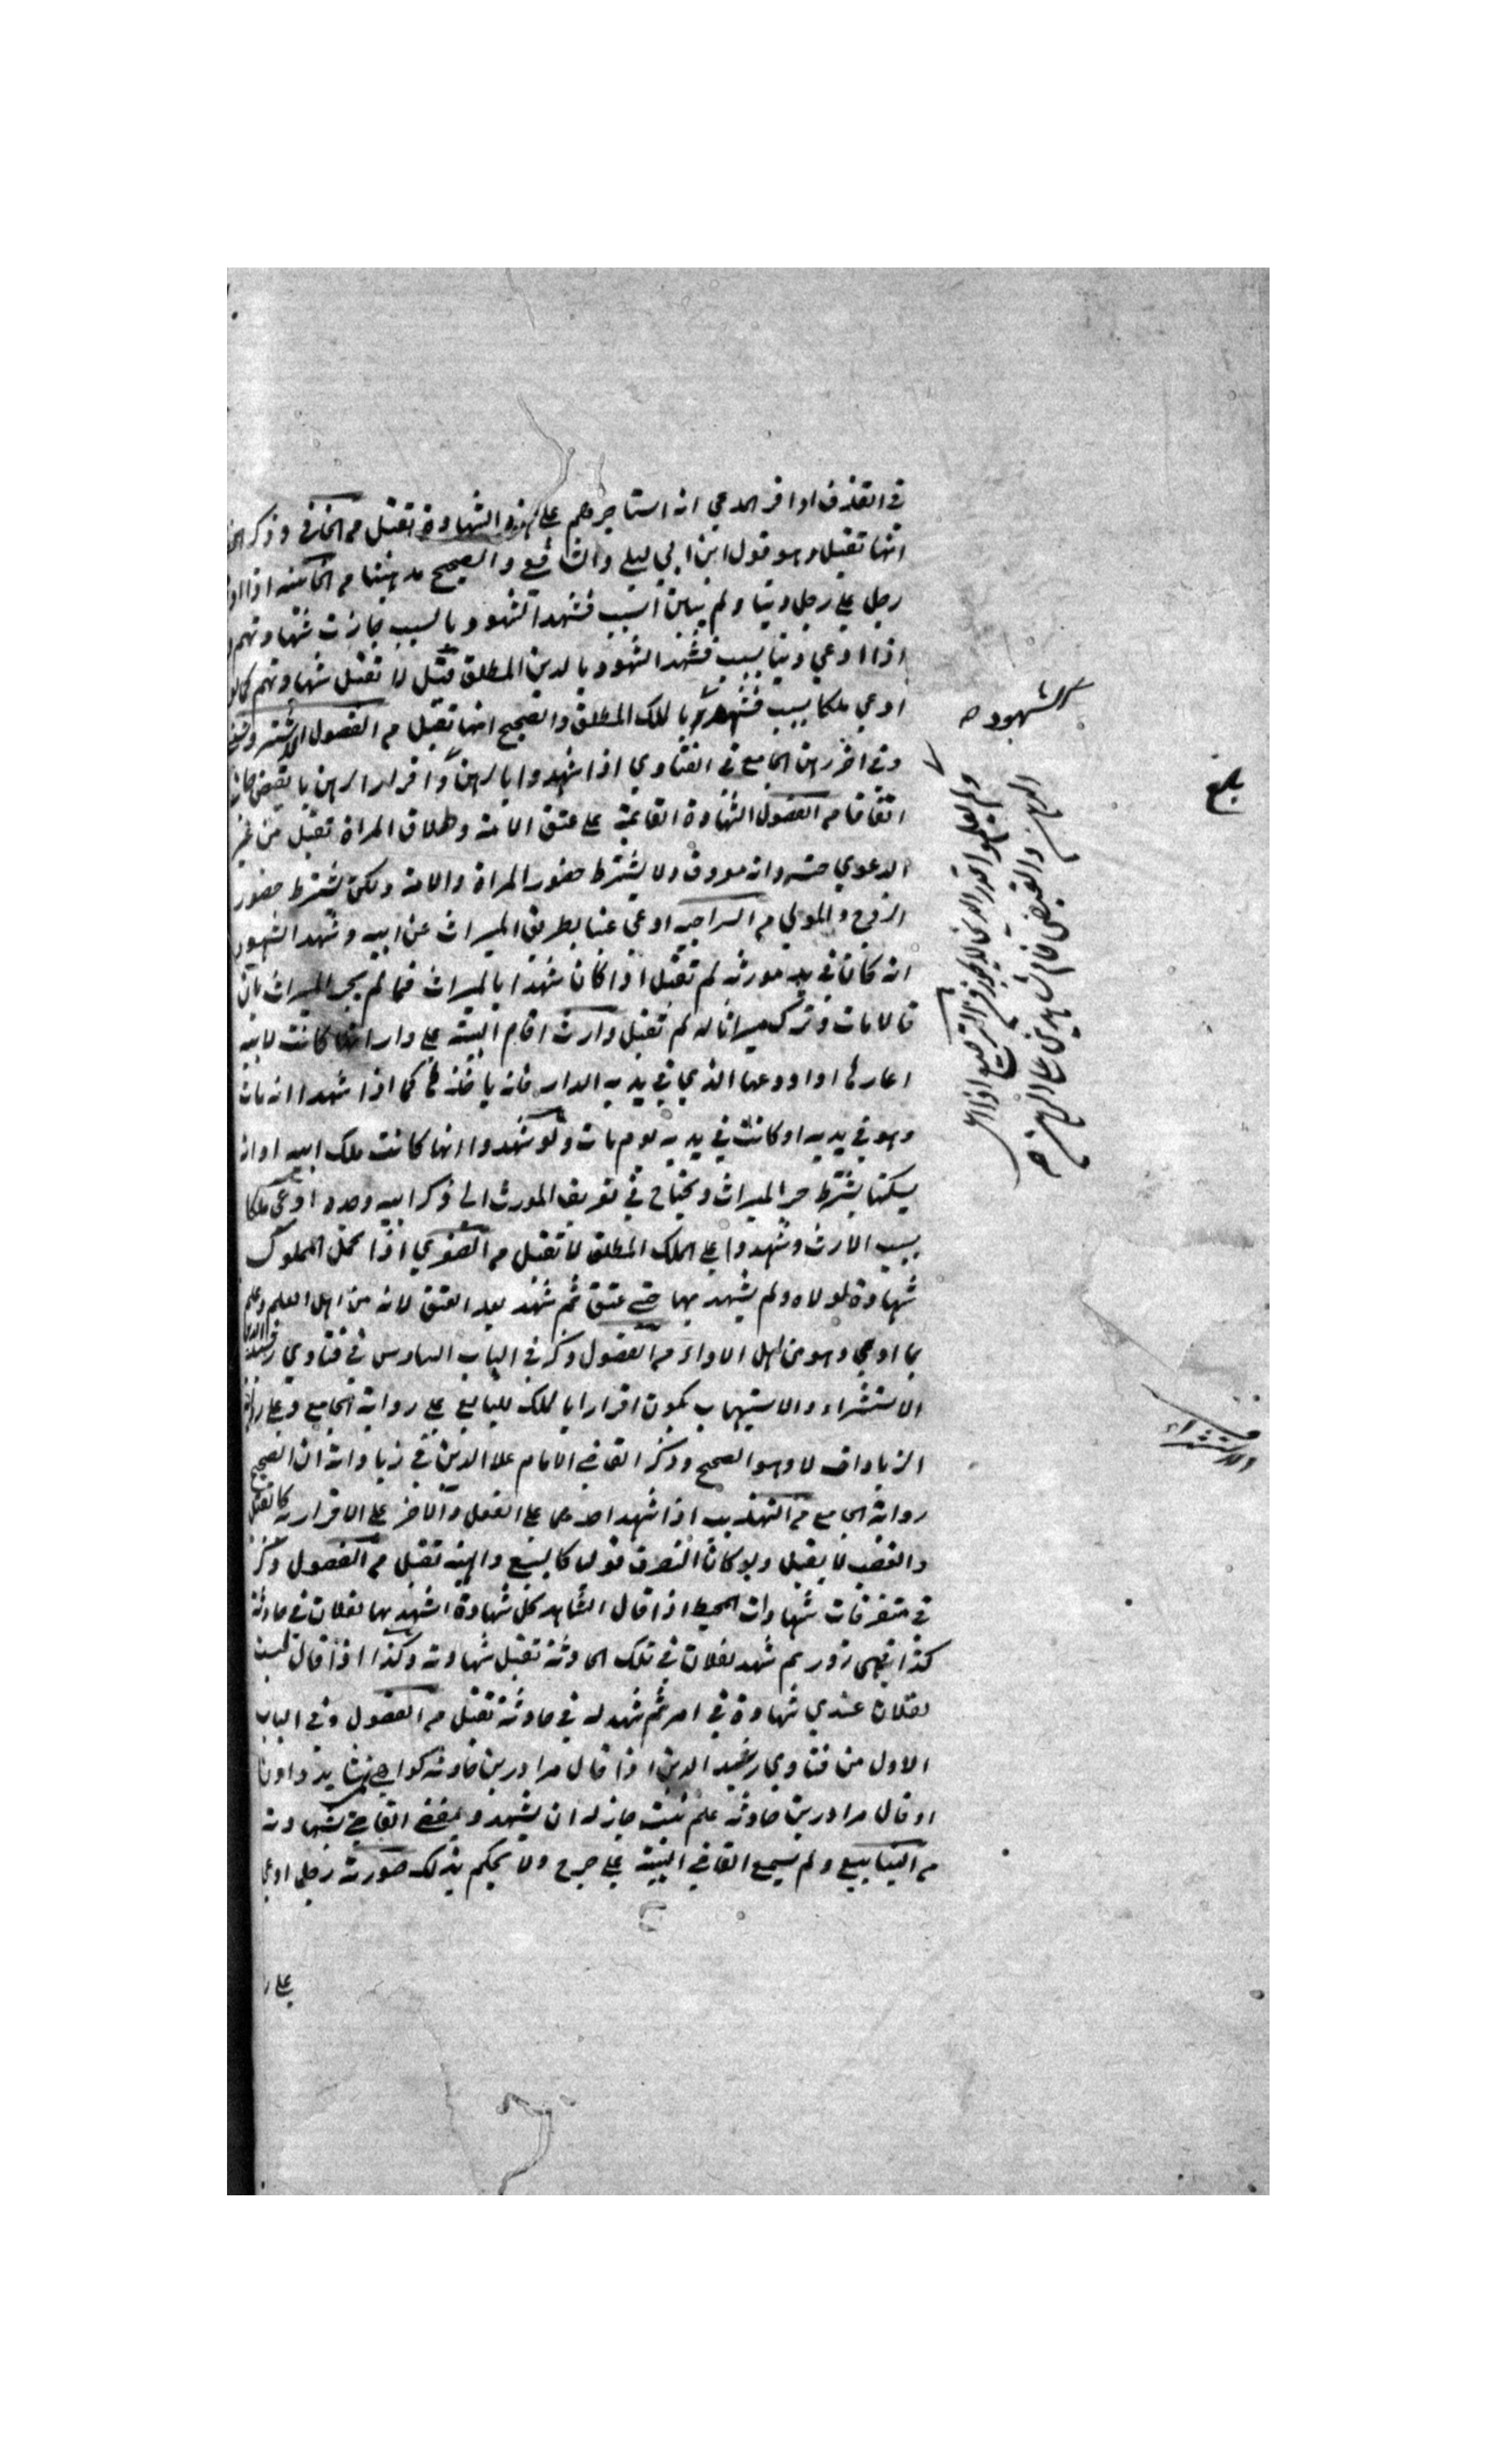 في القذف او اقر المدعي انه استاجرهم على هذه الشهادة تقبل من الكافي وذكر
انها تقبل وهو قول ابن ابي ليلى والشافعي والصحيح مذهبنا من الخامسة اذا
رجل على رجل دينا ولم يبين السبب فشهد الشهود بالسبب جازت شهادتهم
اذا ادعي دينا بسبب فشهد الشهود بالدين المطلق قيل لا تقبل شهادتهم كما لو
ادعي ملكا بسبب فشهدوا بالملك المطلق والصحيح انها تقبل من الفصول
وفي اخر رهن الجامع في الفتاوي اذا شهدوا بالرهن واقرار الراهن بالقبض جاز
اتفاقا من الفصول الشهادة القائمة على عتق الامة وطلاق المراة تقبل من غير
الدعوي حسبة وانه معروف ولا يشترط حضور المراة والامة ولكن يشترط حضور
الزوج والمولي من السراجيه ادعي عينا بطريق الميراث عن ابيه وشهد الشهود
انه كان في يد مورثه لم تقبل اذا كان شهدا بالميراث فما لم يجر الميراث بان
قالا مات وترك ميراثا له لم تقبل وارث اقام البينة على دار انها كانت لابيه
اعارها او اودعها الذي في يديه الدار فانه ياخذها كما اذا شهدا انه مات
وهو في يديه او كانت في يديه يوم مات ولو شهدوا انها كانت ملك ابيه او انه
يسكنها يشترط جر الميراث ويحتاج في تعريف المورث الى ذكر ابيه وجده ادعى ملكا
بسبب الارث وشهدوا على الملك المطلق لا تقبل من الصغري اذا تحمل المملوك
شهادة لمولاه ولم يشهد بها حتى عتق ثم شهد بعد العتق لانه من اهل العلم وعلم
بما ادعي وهو من اهل الاداء من الفصول وذكر في الباب السادس في فتاوي رشيد الدين
الاستشراء والاستيهاب يكون اقرارا بالملك للبايع على رواية الجامع وعلى رواية
الزيادات لا وهو الصحيح وذكر القاضي الامام علا الدين في زياداته ان الصحيح
رواية الجامع من التهذيب اذا شهد احدهما على الفعل والاخر على الاقرار به كالقتل
والغصب لا يقبل ولو كان التصرف قولا كالبيع والهبة تقبل من الفصول وذكر
في متفرقات شهادات المحيط اذا قال الشاهد كل شهادة اشهد بها لفلان في حادثة
كذا فهي زور ثم شهد لفلان في تلك الحادثة تقبل شهادته وكذا اذا قال ليست
لفلان عندي شهادة في امر ثم شهد له في حادثة تقبل من الفصول وفي الباب
الاول من فتاوي رشيد الدين اذا قال مرا درين حادثه كواهي
او قال مرا درين حادثه علم نيست جاز له ان يشهد ويقضي القاضي بشهادته
من الينابيع ولم يسمع القاضي البينة على جرح ولا يحكم بذلك صورته رجل ادعي
على
الشهود
الرهن والقبض
بلغ
والاستشراء